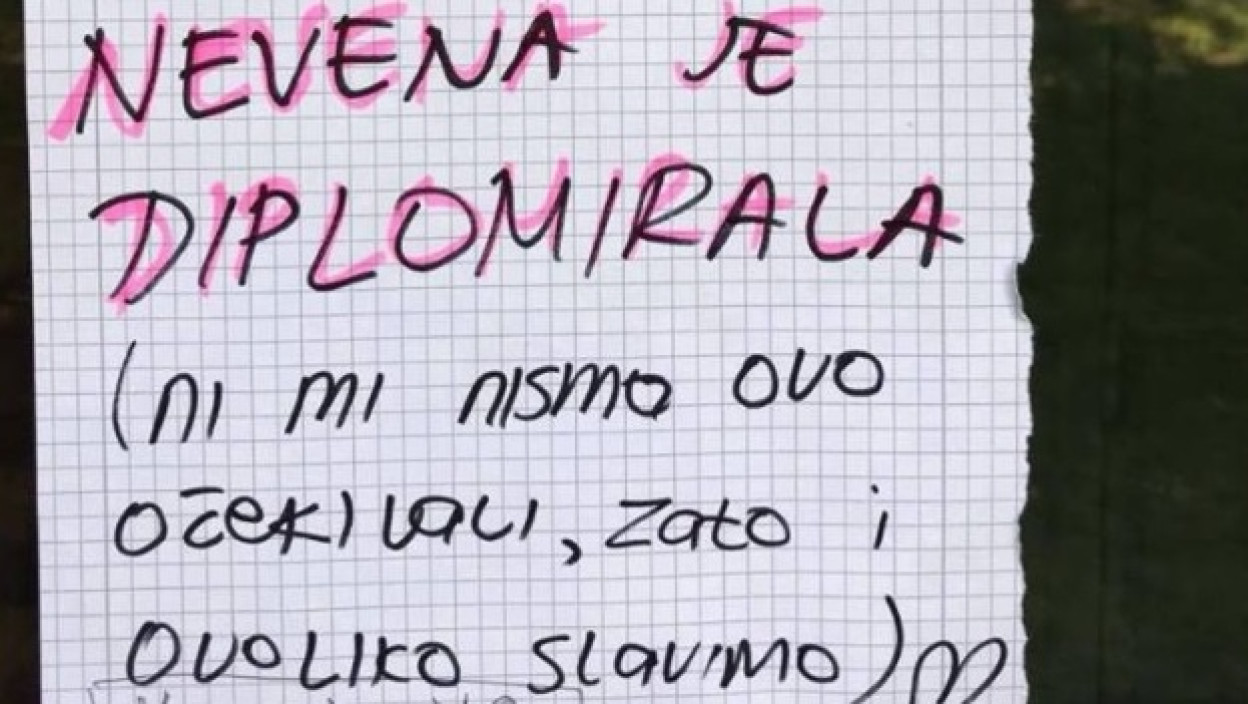 NEVENA JE
DIPLOMIRALA
(ni mi nismo ovo
očekivali, zato i
ovoliko slavimo)♡